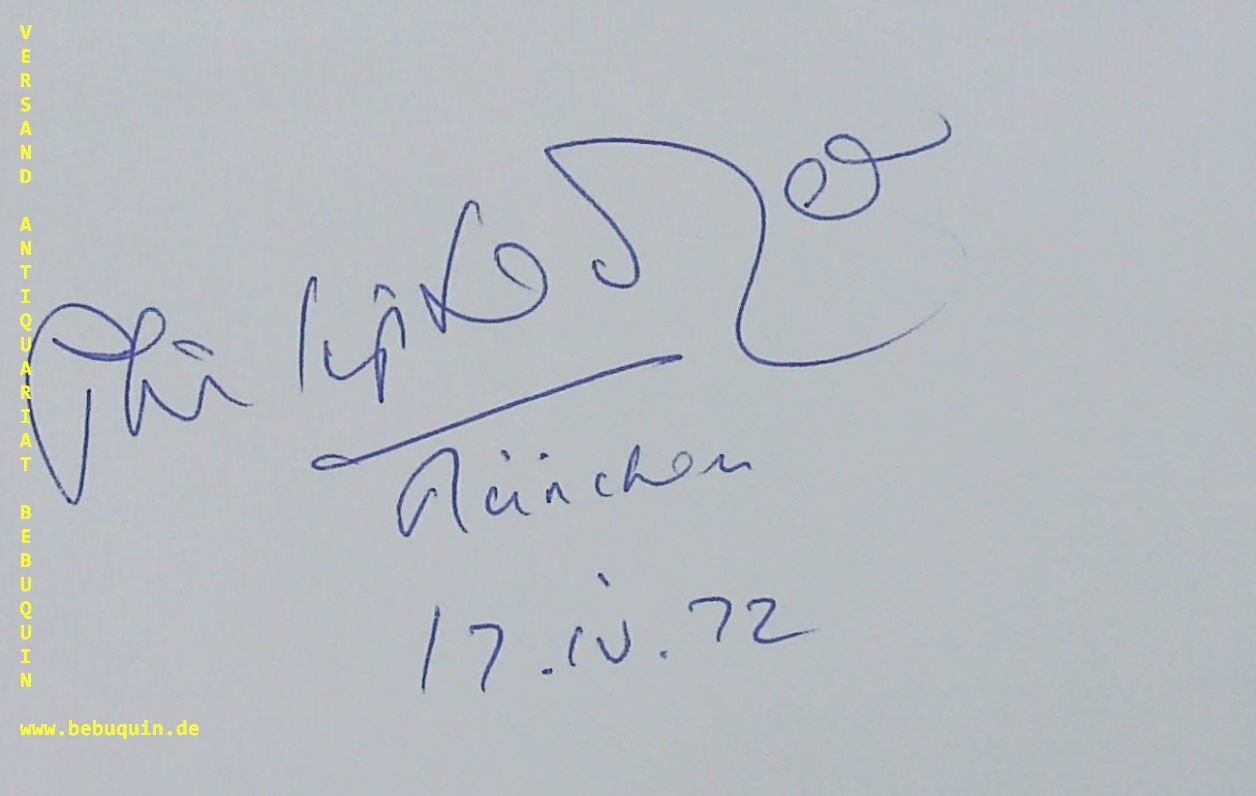 VERSAND ANTIQUARIAT BEBUQUIN
Philip
München
17.IV.72
www.bebuquin.de